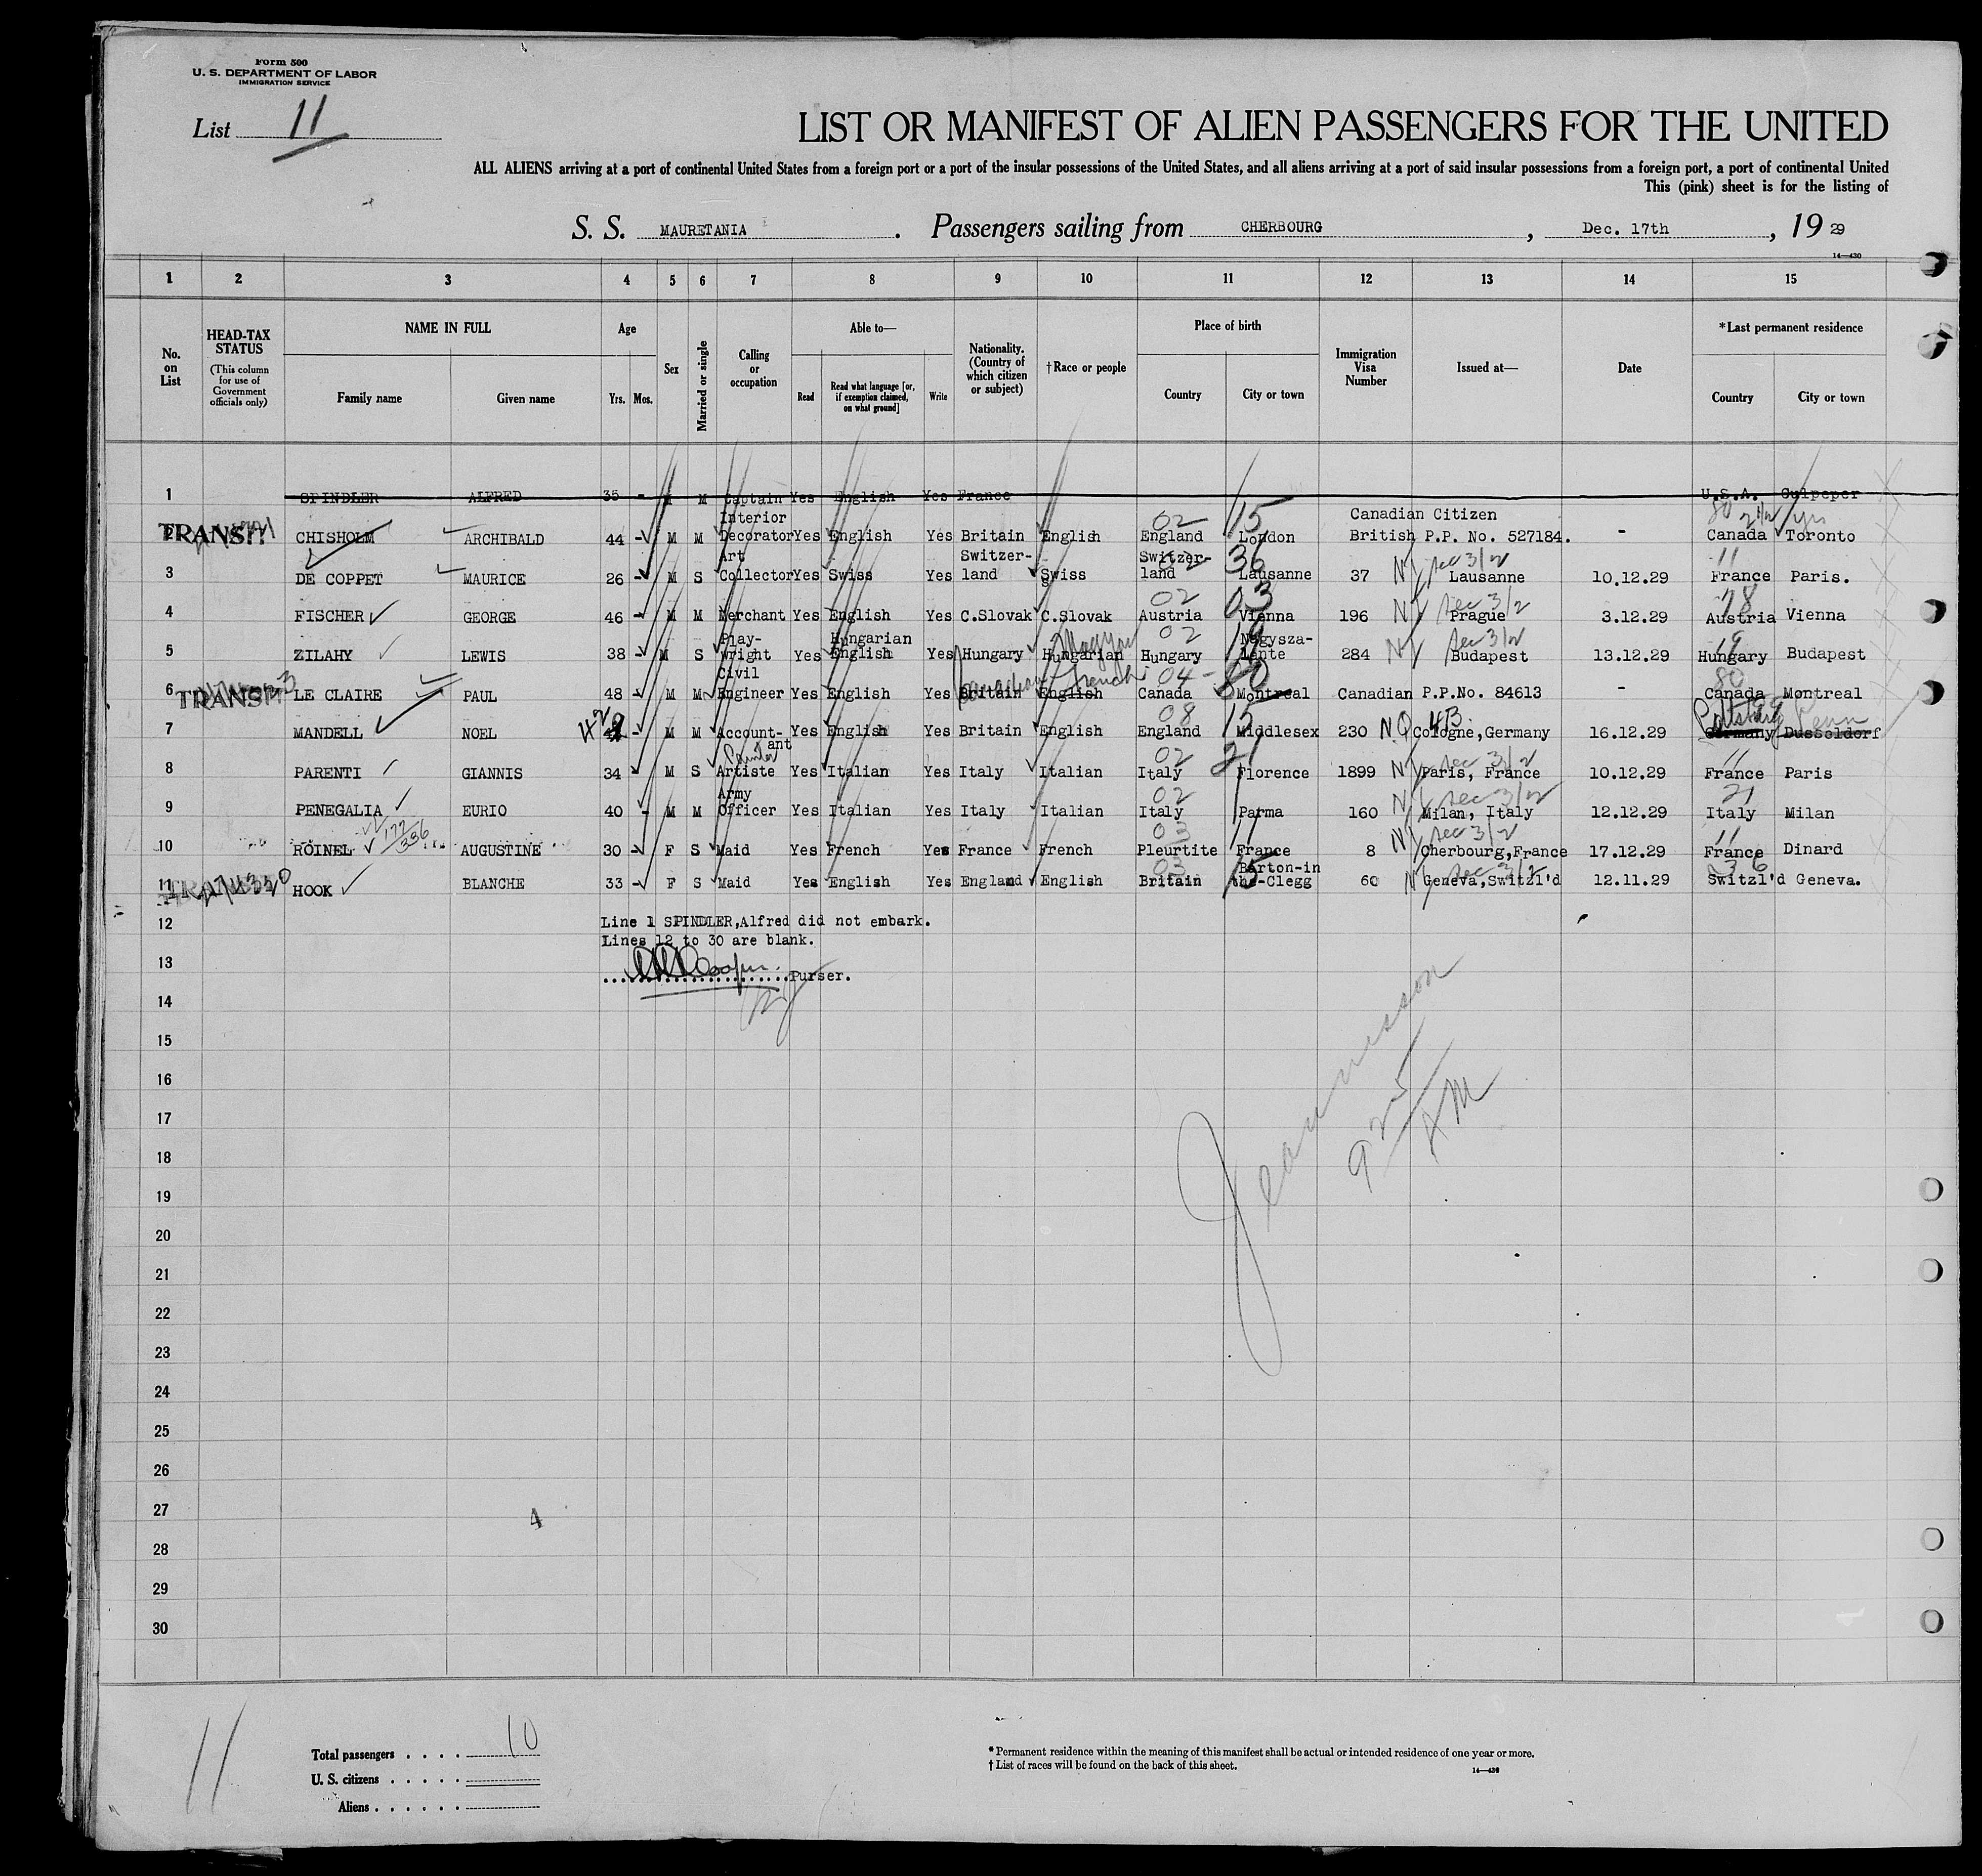 Form 500
U. S. DEPARTMENT OF LABOR
IMMIGRATION SERVICE
List 11
LIST OR MANIFEST OF ALIEN PASSENGERS FOR THE UNITED
ALL ALIENS arriving at a port of continental United States from a foreign port or a port of the insular possessions of the United States, and all aliens arriving at a port of said insular possessions from a foreign port, a port of continental United
This (pink) sheet is for the listing of
S. S. MAURETANIA . Passengers sailing from CHERBOURG , Dec. 17th , 19 29
14—430
1 2 3 4 5 6 7 8 9 10 11 12 13 14 15
No. on List
HEAD-TAX STATUS (This column for use of Government officials only)
NAME IN FULL Family name Given name
Age Yrs. Mos.
Sex
Married or single
Calling or occupation
Able to— Read Read what language [or, if exemption claimed, on what ground] Write
Nationality. (Country of which citizen or subject)
†Race or people
Place of birth Country City or town
Immigration Visa Number
Issued at—
Date
*Last permanent residence Country City or town
1 SPINDLER ALFRED 35 - M M Captain Yes English Yes France U.S.A. Culpeper
TRANSIT 2 CHISHOLM ARCHIBALD 44 - M M Interior Decorator Yes English Yes Britain English 02 England 15 London Canadian Citizen British P.P. No. 527184. - 80 Canada Toronto 2 1/2 yrs
3 DE COPPET MAURICE 26 - M S Art Collector Yes Swiss Yes Switzer-land Swiss Switzer-land 36 Lausanne 37 Sec 3/2 Lausanne 10.12.29 11 France Paris.
4 FISCHER GEORGE 46 - M M Merchant Yes English Yes C.Slovak C.Slovak 02 Austria 03 Vienna 196 Sec 3/2 Prague 3.12.29 Austria Vienna
5 ZILAHY LEWIS 38 - M S Play-wright Yes Hungarian English Yes Hungary Hungarian Magyar 02 Hungary 19 Nagysza-lonte 284 Sec 3/2 Budapest 13.12.29 19 Hungary Budapest
TRANSIT 6 LE CLAIRE PAUL 48 - M M Civil Engineer Yes English Yes Britain Canadian English French 04 Canada 80 Montreal Canadian P.P.No. 84613 - 80 Canada Montreal
7 MANDELL NOEL 42 - M M Account-ant Yes English Yes Britain English 08 England 15 Middlesex 230 N.Q 4B Cologne,Germany 16.12.29 Germany Dusseldorf Penn
8 PARENTI GIANNIS 34 - M S Painter Artiste Yes Italian Yes Italy Italian 02 Italy 21 Florence 1899 Sec 3/2 Paris, France 10.12.29 11 France Paris
9 PENEGALIA EURIO 40 - M M Army Officer Yes Italian Yes Italy Italian 02 Italy Parma 160 Sec 3/2 Milan, Italy 12.12.29 21 Italy Milan
10 ROINEL 177/336 AUGUSTINE 30 - F S Maid Yes French Yes France French 03 Pleurtite 11 France 8 Sec 3/2 Cherbourg,France 17.12.29 11 France Dinard
11 HOOK BLANCHE 33 - F S Maid Yes English Yes England English 03 Britain 15 Barton-in the-Clegg 60 Sec 3/2 Geneva,Switzl'd 12.11.29 36 Switzl'd Geneva.
12 Line 1 SPINDLER,Alfred did not embark.
Lines 12 to 30 are blank.
13 Purser.
14
15
16
17
18
19
20
21
22
23
24
25
26
27
28
29
30
925 AM
4
11
Total passengers . . . . 10
U. S. citizens . . . . .
Aliens . . . . . .
*Permanent residence within the meaning of this manifest shall be actual or intended residence of one year or more.
†List of races will be found on the back of this sheet.
14—430